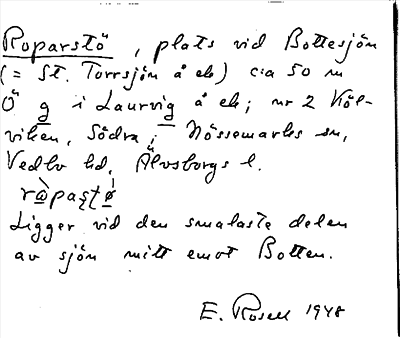 Roparstö, plats vid Bottesjön
(= St. Torrsjön å ek) c:a 50 m
Ö g i Laurvig å ek; nr 2 Köl-
viken, Södra, i Nössemarks sn,
Vedbo hd, Älvsborgs l.
Ligger vid den smalaste delen
av sjön mitt emot Botten.
E. Rosell 1948